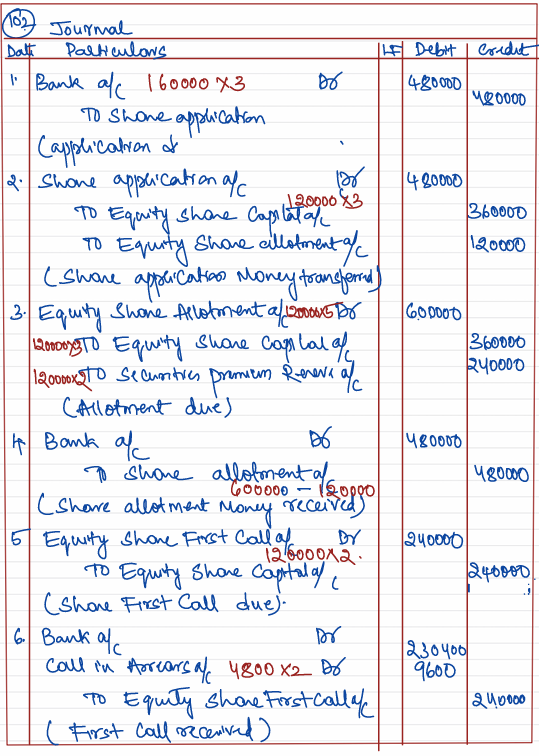 102 Journal
Date Particulars LF Debit Credit
1. Bank a/c 160000 X3 Dr 480000
To Share application 480000
(application of
2. Share application a/c Dr 480000
120000 X3
To Equity Share Capital a/c 360000
To Equity Share allotment a/c 120000
(Share application Money transferred)
3. Equity Share Allotment a/c 120000X5 Dr 600000
120000X3 To Equity Share Capital a/c 360000
120000X2 To Securities premium Reserve a/c 240000
(Allotment due)
4 Bank a/c Dr 480000
To Share allotment a/c 480000
600000 - 120000
(Share allotment Money received)
5 Equity Share First Call a/c Dr 240000
120000X2.
To Equity Share Capital a/c 240000
(Share First Call due).
6. Bank a/c Dr 230400
Call in Arrears a/c 4800 X2 Dr 9600
To Equity Share First Call a/c 240000
(First Call received)